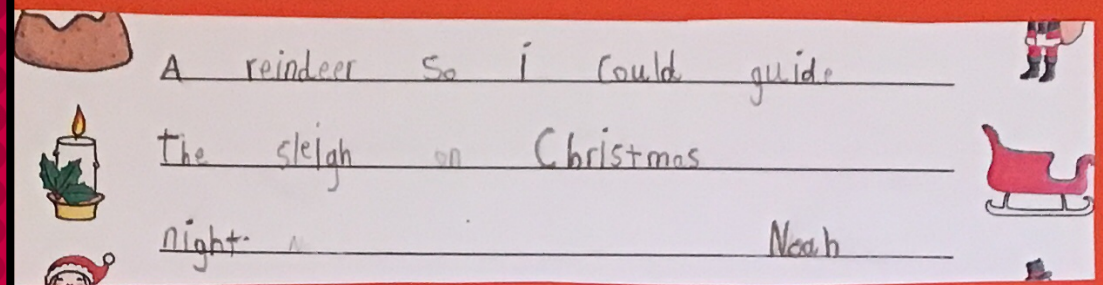 A reindeer so i could guide
the sleigh on Christmas
night. Noah